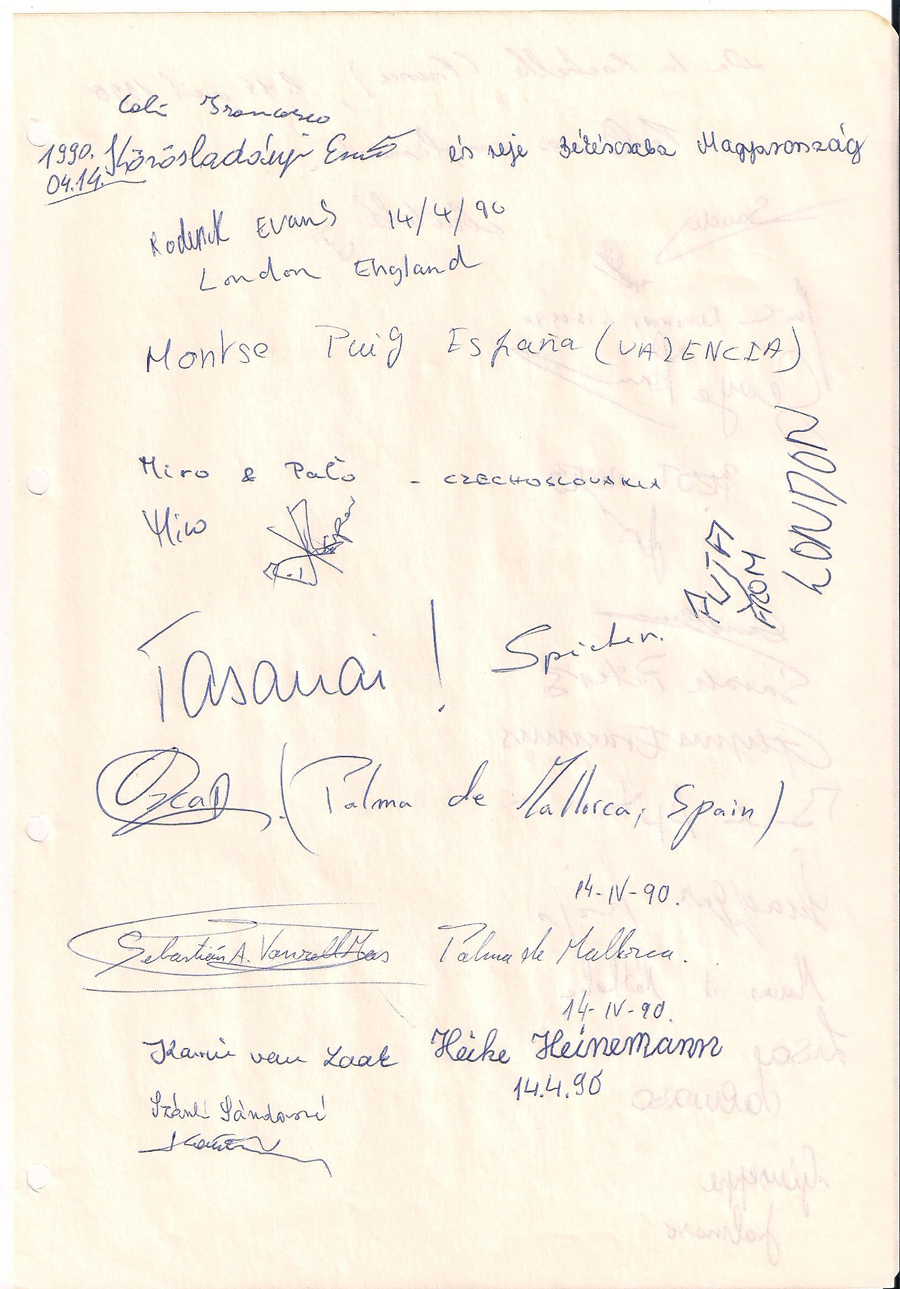 Francesco
1990. Körösladányi Ernő és neje Békéscsaba Magyarország
04.14.
Roderick Evans 14/4/90
London England
Montse Puig España (VALENCIA)
Miro & Paťo - CZECHOSLOVAKIA
Miro
FROM
LONDON
Tasanai !
Oscar (Palma de Mallorca, Spain)
14-IV-90.
Sebastián A. Vanrell Mas Palma de Mallorca.
14-IV-90.
Karin van Laak Heike Heinemann
14.4.90
Sándorné